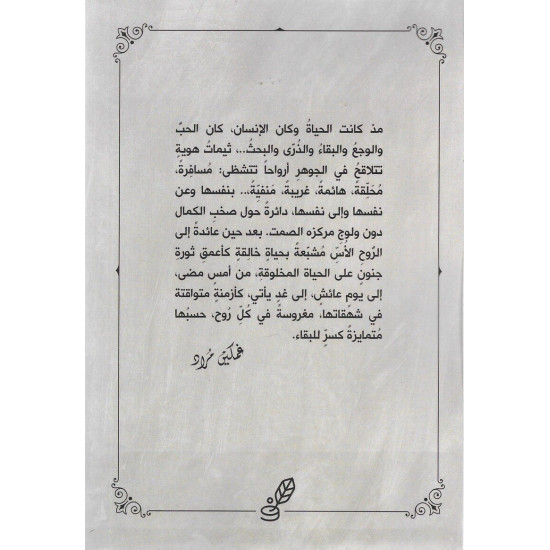 مذ كانت الحياةُ وكان الإنسان، كان الحبّ
والوجعُ والبقاءُ والذُرَى والبحثُ...، ثيماتُ هويةٍ
تتلاقحُ في الجوهرِ أرواحاً تتشظى: مُسافِرةً،
مُحَلِّقةً، هائمةً، غريبةً، مَنفيّةً...، بنفسها وعن
نفسها وإلى نفسها، دائرةً حول صخبِ الكمال
دون ولوجِ مركزه الصمت. بعد حين عائدةً إلى
الرّوح الأسّ مُشبّعةً بحياةٍ خالِقةٍ كأعمقِ ثورةِ
جنونٍ على الحياة المخلوقة، من أمسٍ مضى،
إلى يومٍ عائشٍ، إلى غدٍ يأتي، كأزمنةٍ متواقتة
في شهقاتها، مغروسةً في كُلِّ روح، حسبُها
مُتمايزةً كسرٍّ للبقاء.
غمكين مُراد